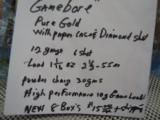 "Gamebore"
Pure Gold
With paper cases Diamond shot
12 gauge 1 shot
Load 1 1/16 oz
powder charg 30 gms
High performance 10g Game Load
NEXT 8 Box's £15